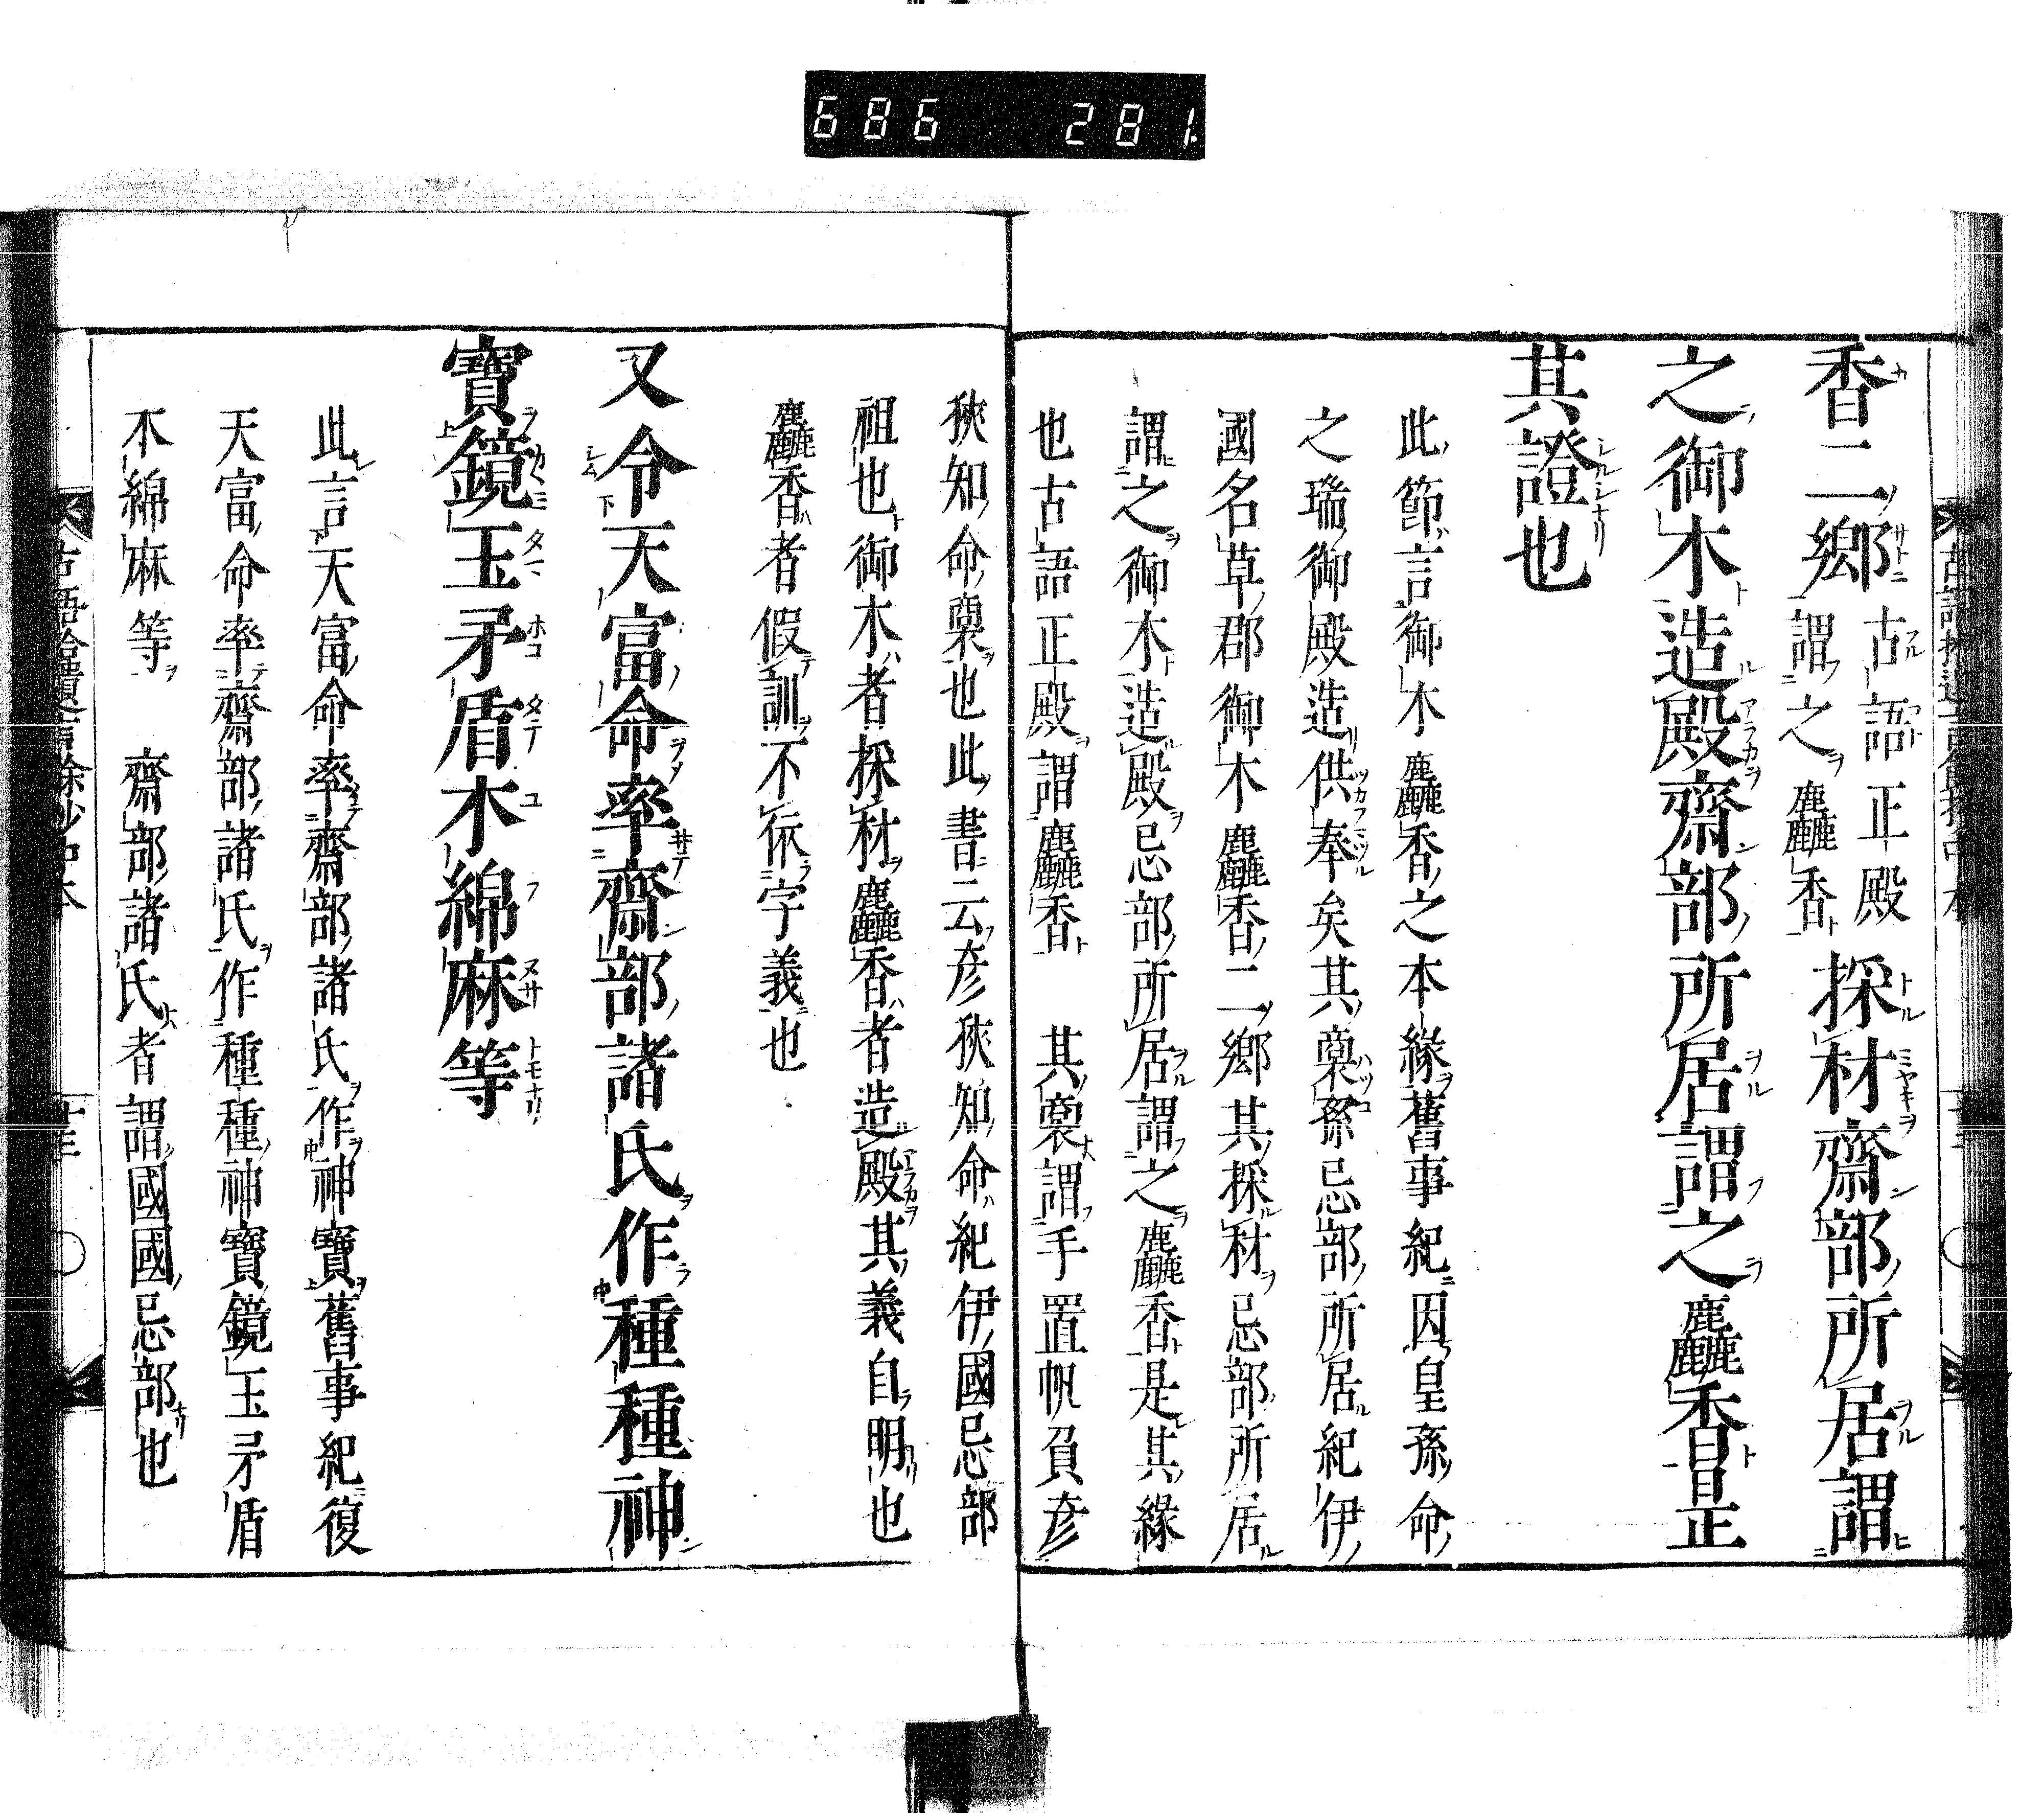 686 281
香二鄉古語正殿謂之麤香採材齋部所居謂
之御木造殿齋部所居謂之麤香是
其證也
此節言御木麤香之本緣舊事紀因皇孫命
之瑞御殿造供奉矣其裔孫忌部所居紀伊
國名草郡御木麤香二鄉其採材忌部所居
謂之御木造殿忌部所居謂之麤香是其緣
也古語正殿謂麤香 其裔謂手置帆負彥
狹知命裔也此書云彥狹知命紀伊國忌部
祖也御木者採材麤香者造殿其義自明也
麤香者假訓不依字義也
又令天富命率齋部諸氏作種種神
寶鏡玉矛盾木綿麻等
此言天富命率齋部諸氏作神寶舊事紀復
天富命率齋部諸氏作種種神寶鏡玉矛盾
木綿麻等 齋部諸氏者謂國國忌部也